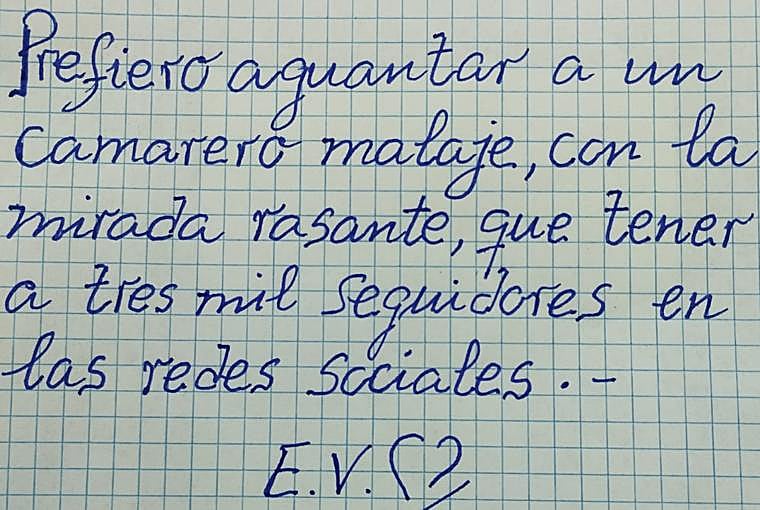 Prefiero aguantar a un
camarero malaje, con la
mirada rasante, que tener
a tres mil seguidores en
las redes sociales. -
E.V.